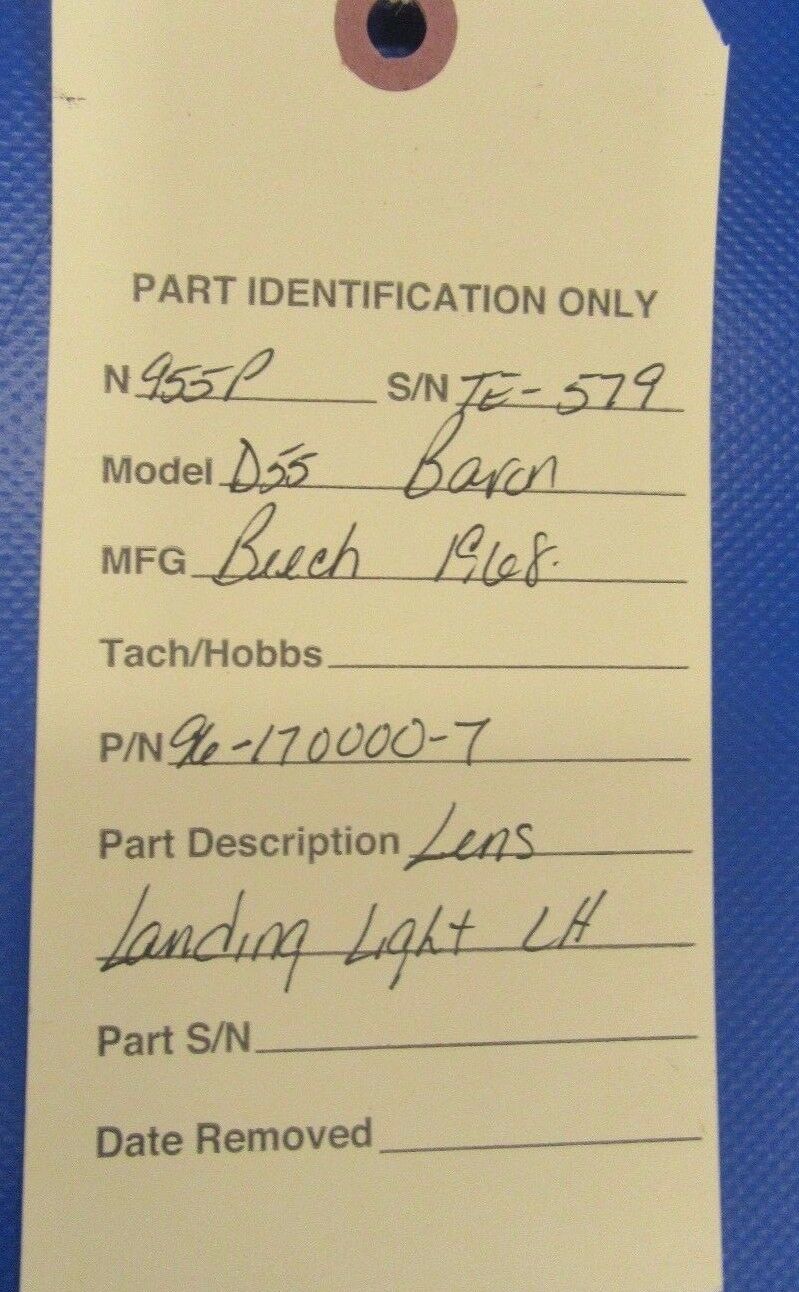 PART IDENTIFICATION ONLY
N 955P S/N TE-579
Model D55 Baron
MFG Beech 1968.
Tach/Hobbs
P/N 96-170000-7
Part Description Lens
Landing Light LH
Part S/N
Date Removed